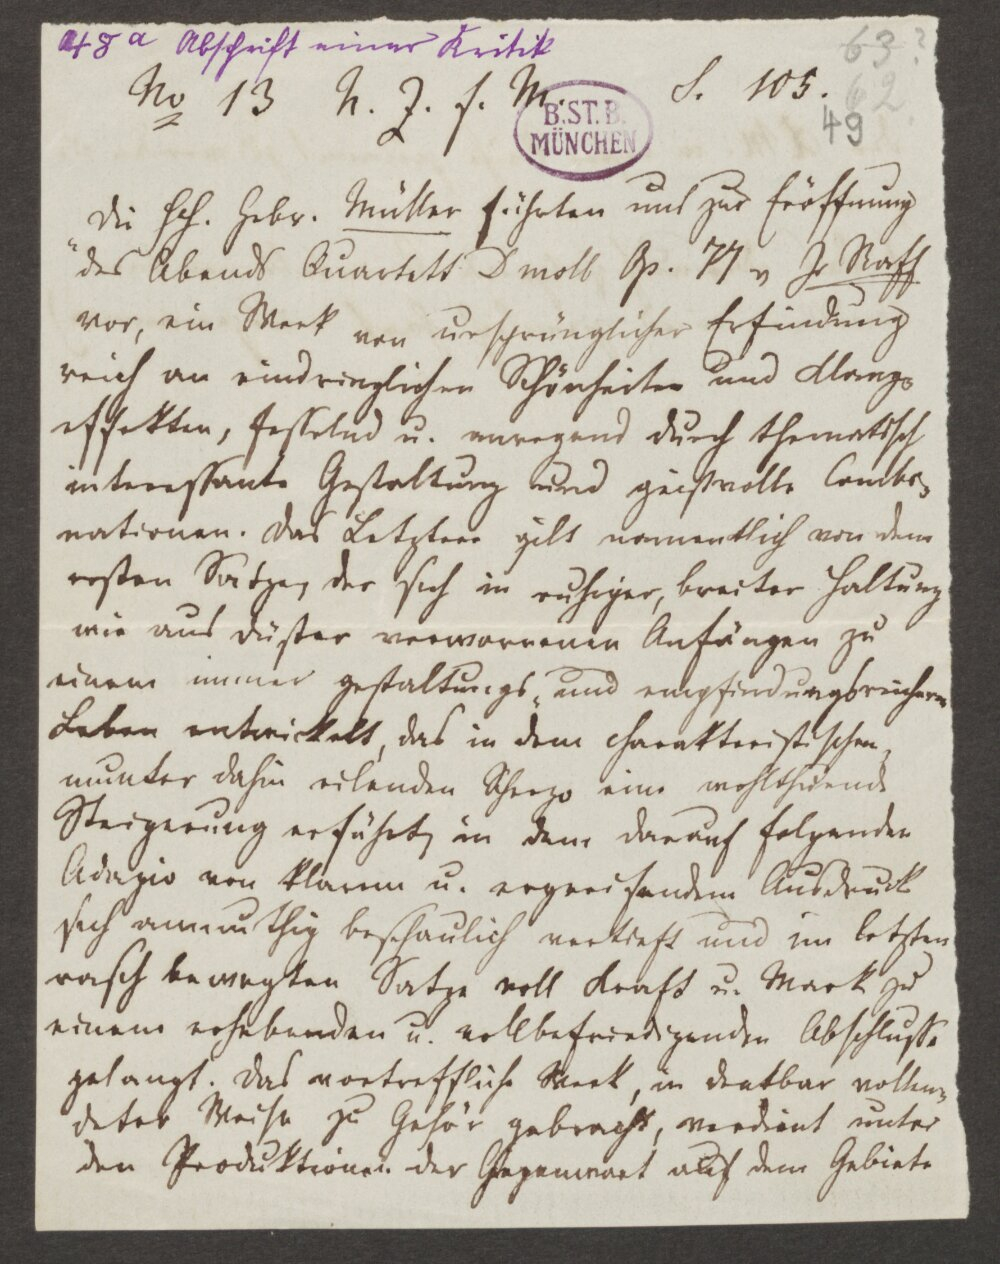 48a Abschrift einer Kritik
63?
62
49
No 13 N. Z. f. M. S. 105.
B.ST.B.
MÜNCHEN
Die HH. Gebr. Müller führten uns zur Eröffnung
"des Abends Quartett D moll Op. 77 v J. Raff
vor, ein Werk von ursprünglicher Erfindung
reich an eindringlichen Schönheiten und Klang-
effekten, fesselnd u. anregend durch thematisch
interessante Gestaltung und geistvolle Combi-
nationen. Das Letztere gilt namentlich von dem
ersten Satze, der sich in ruhiger, breiter Haltung
wie aus düster verworrenen Anfängen zu
einem immer gestaltungs- und empfindungsreichern
Leben entwickelt, das in dem charakteristischen,
munter dahin eilenden Scherzo eine wohlthuende
Steigerung erfährt, in dem darauf folgenden
Adagio von klarem u. ergreifendem Ausdruck
sich anmuthig beschaulich vertieft und im letzten
rasch bewegten Satze voll Kraft u. Mark zu
einem erhebenden u. vollbefriedigenden Abschlusse
gelangt. Das vortreffliche Werk, in denkbar vollen-
deter Weise zu Gehör gebracht, verdient unter
den Produktionen der Gegenwart auf dem Gebiete